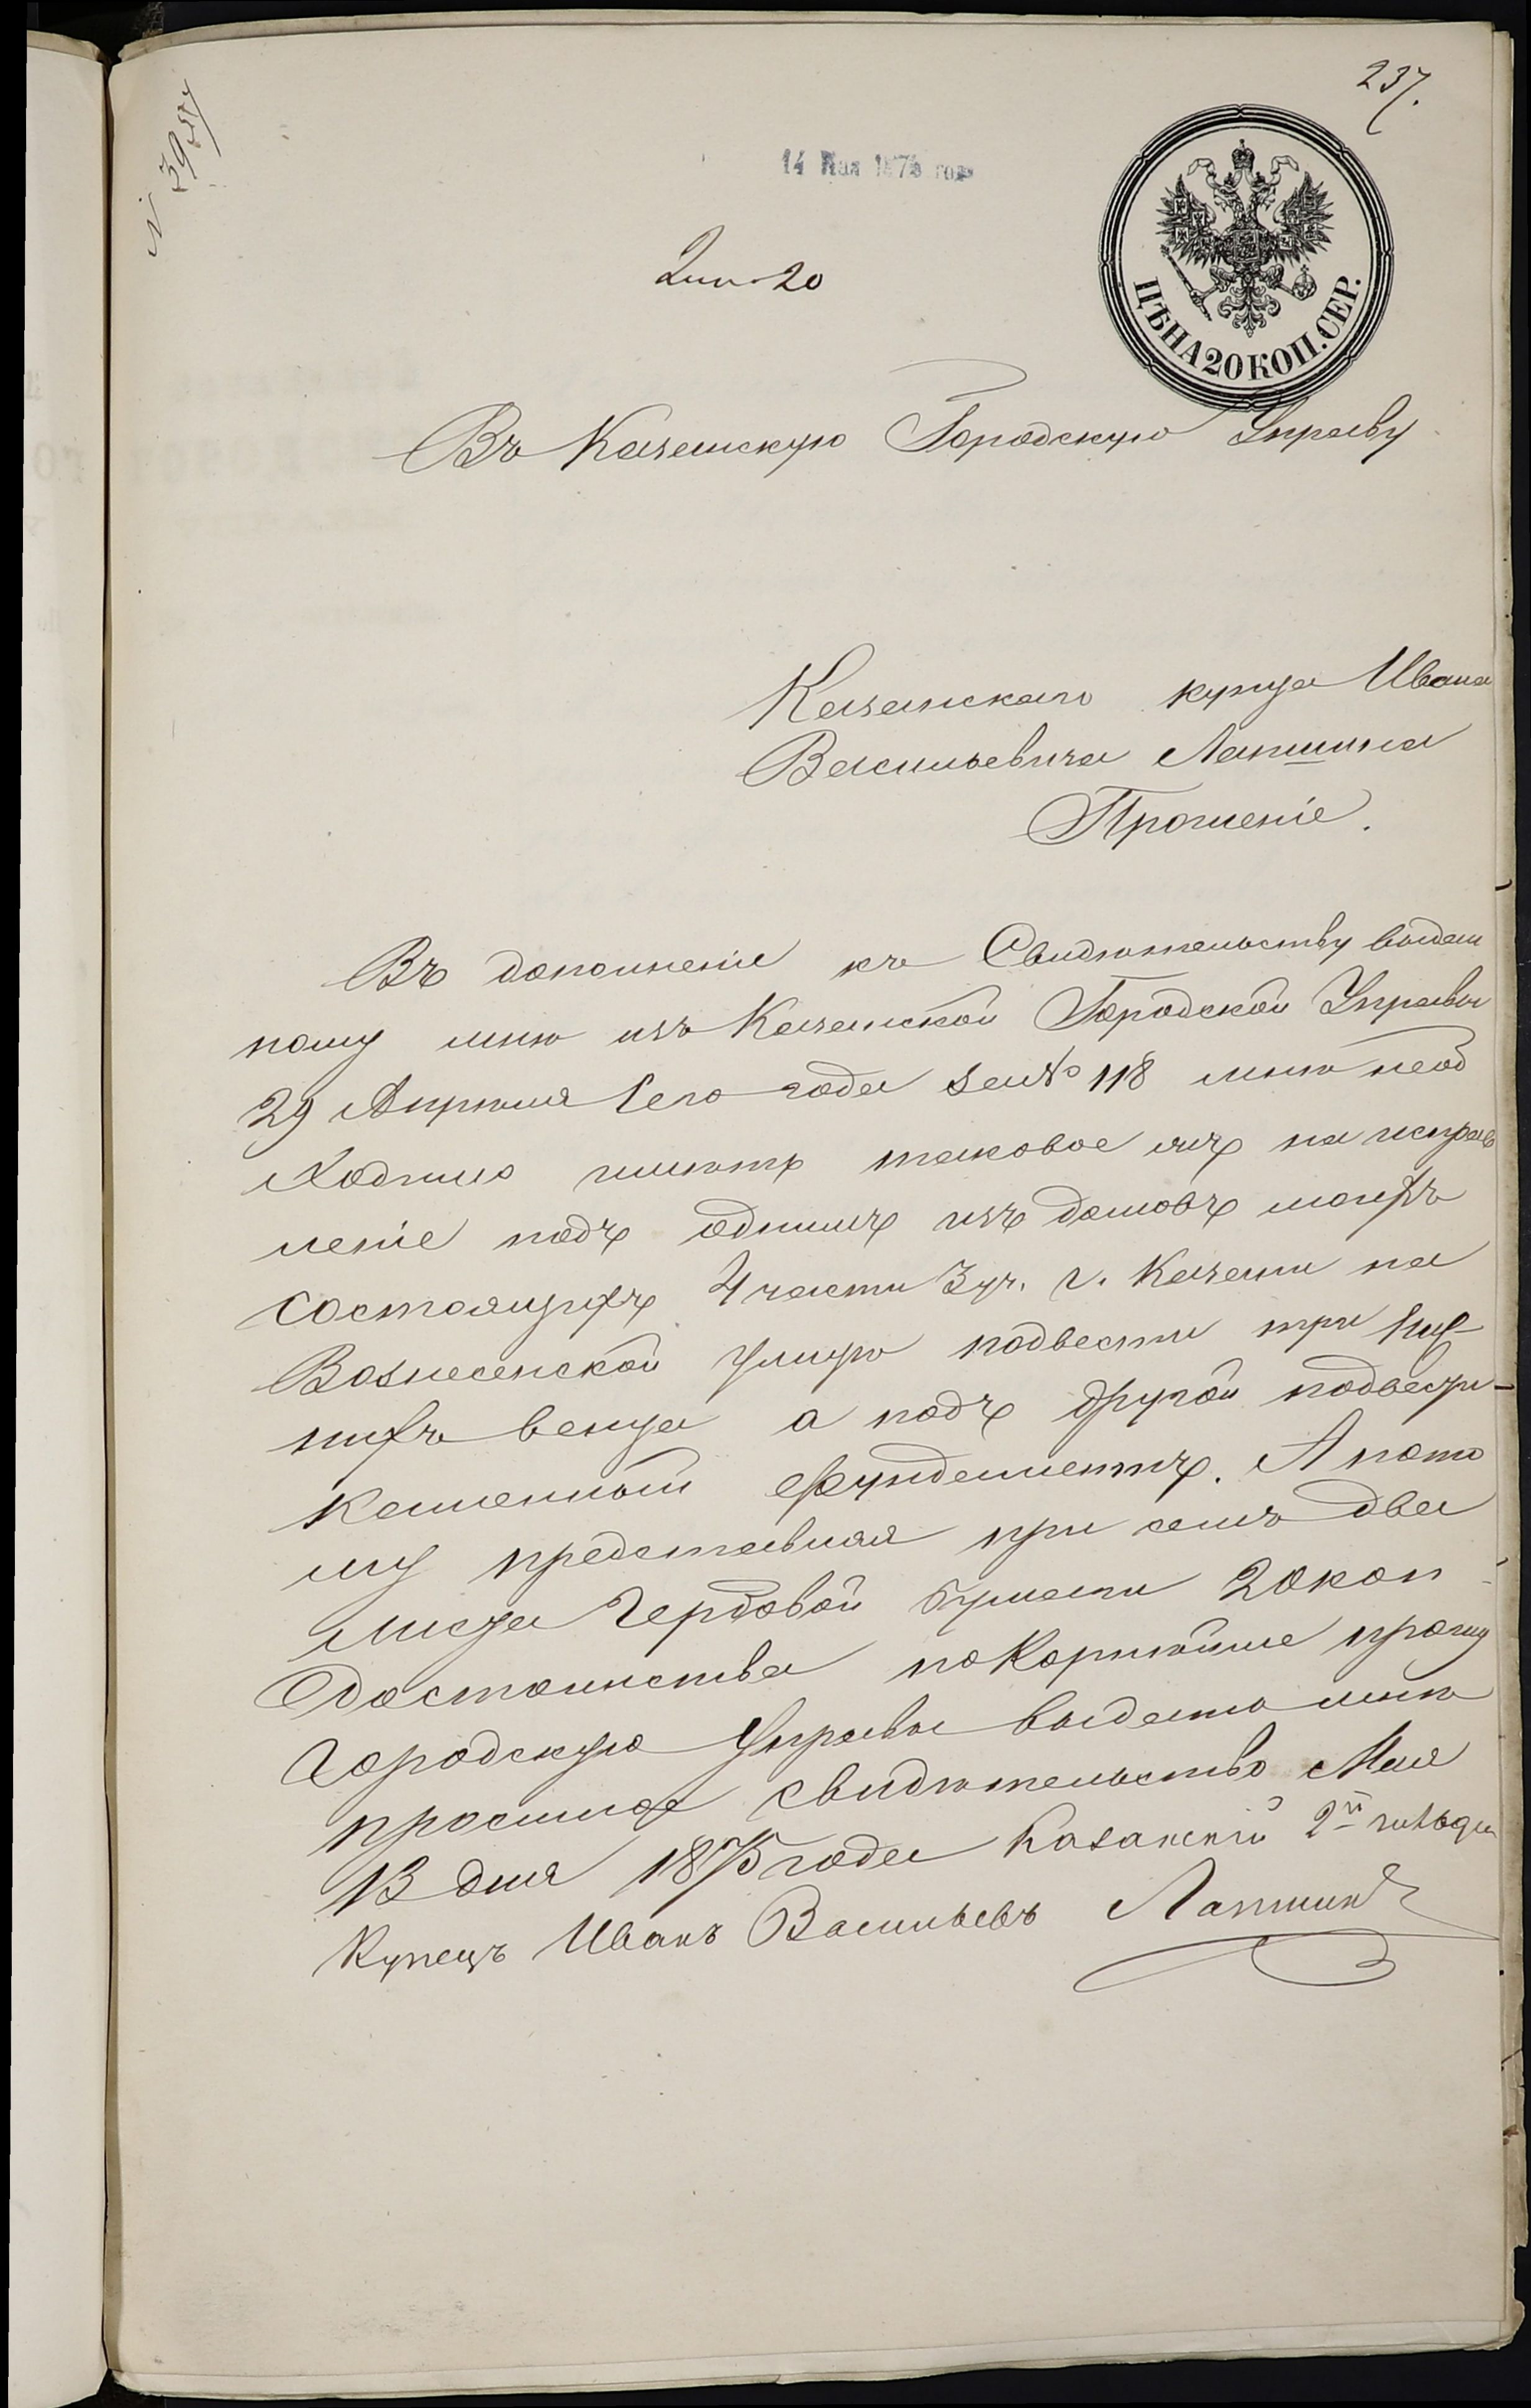 237.
N 3954
14 Мая 1875 года
ЦѢНА 20 КОП. СЕР.
Въ Казанскую Городскую Управу
Казанскаго купца Ивана
Васильевича Лапшина
Прошеніе.
Въ дополненіе къ Свидѣтельству выдан
ному мнѣ изъ Казанской Городской Управы
29 Апрѣля Сего года за № 118 мнѣ необ
ходимо имѣть таковое ... на исправ
леніе подъ однимъ изъ домовъ моихъ
состоящихъ 4 части 3 уч. г. Казани на
Вознесенской улицѣ подвести три ниж-
нихъ венца а подъ другой подвести
каменный фундаментъ. А пото
му представляя при семъ два
листа Гербовой бумаги 20 коп
достоинства покорнѣйше прошу
Городскую Управы выдать мнѣ
просимое свидѣтельство Мая
13 дня 1875 года Казанскій 2й гильдіи
Купецъ Иванъ Васильевъ Лапшинъ